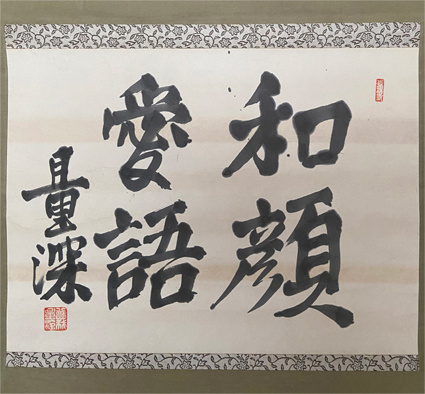 和顔
愛語
量深